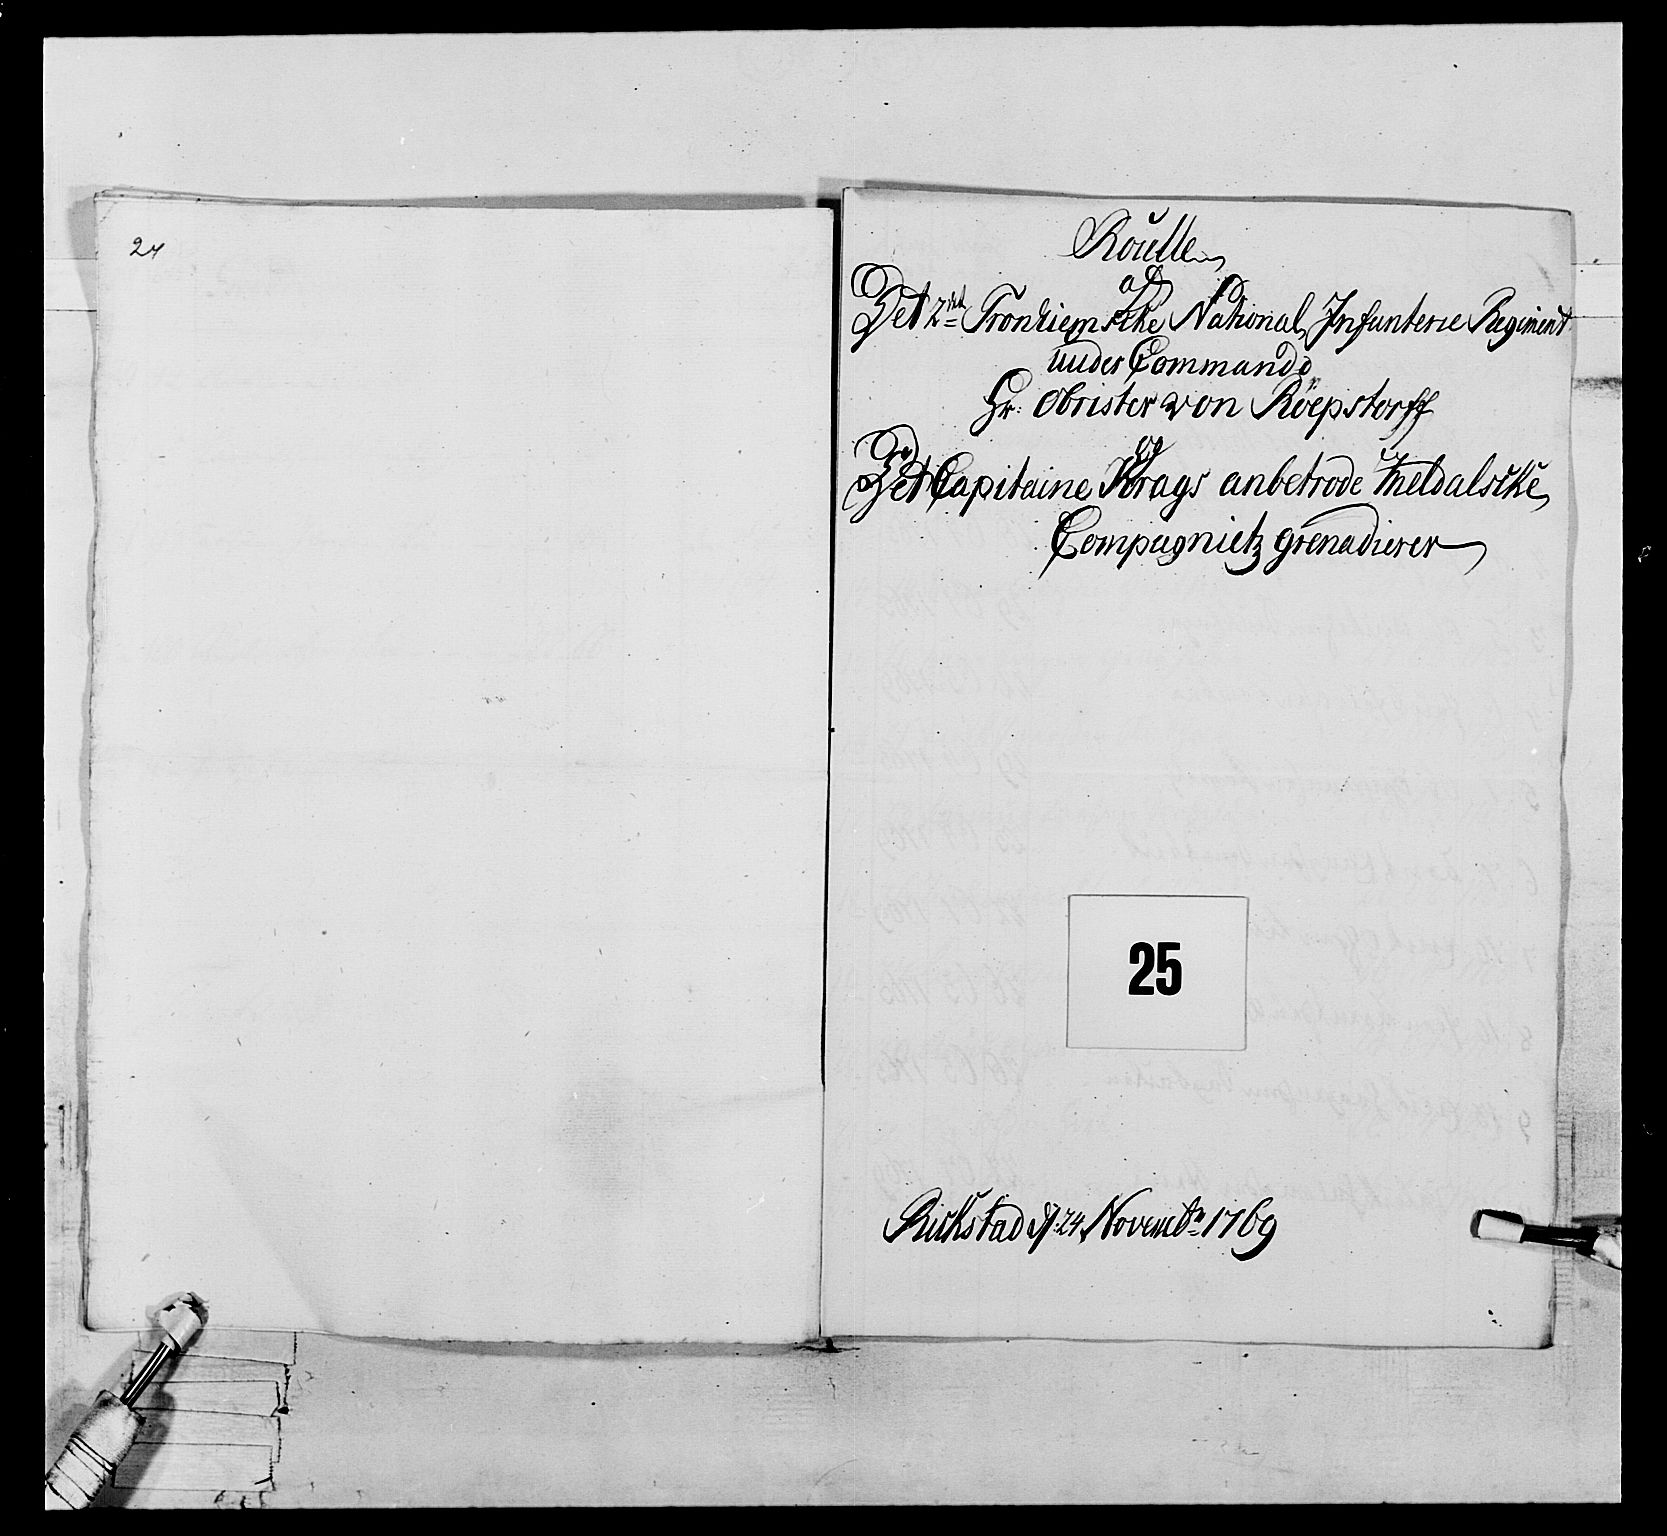 24
Roulle
af
Det 2det Tronhiemske National Infanterie Regiment
under Commando
Hr: Obrister von Röepstorff
og
Det Capitaine Krags anbetrode Meldalske
Compagnietz grenadierer
25
Rickstad d: 24 Novembr 1769